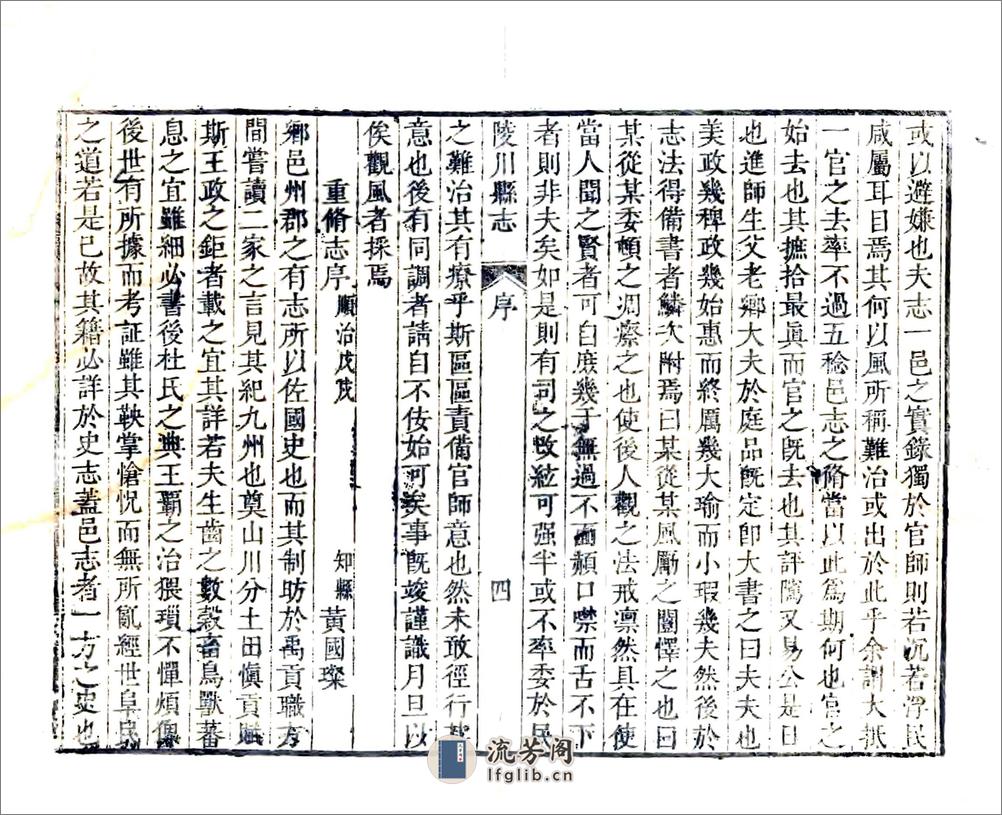 或以避嫌也夫志一邑之實錄獨於官師則若沉若浮民
咸屬耳目焉其何以風所稱難治或出於此乎余謂大抵
一官之去率不過五稔邑志之脩當以此爲期何也官之
始去也其摭拾最眞而官之旣去也其評隲又易公是日
也進師生父老鄉大夫於庭品旣定卽大書之曰夫夫也
美政幾稗政幾始惠而終厲幾大瑜而小瑕幾夫然後於
志法得備書者鱗次附焉曰某從某風勵之闡懌之也曰
某從某委頓之凋瘵之也使後人觀之法戒凛然具在使
當人聞之賢者可自庶幾于無過不面頳口噤而舌不下
者則非夫矣如是則有司之改絃可强半或不率委於民
陵川縣志
序
四
之難治其有療乎斯區區責備官師意也然未敢徑行
意也後有同調者請自不佞始可矣事旣竣謹識月旦以
俟觀風者採焉
重脩志序
順治戊戌
知縣
黃國璨
鄉邑州郡之有志所以佐國史也而其制昉於禹貢職方
間嘗讀二家之言見其紀九州也奠山川分土田愼貢賦
斯王政之鉅者載之宜其詳若夫生齒之數穀畜鳥獸蕃
息之宜雖細必書後杜氏之典王覇之治猥瑣不憚煩俾
後世有所據而考証雖其鞅掌愴怳而無所亂經世阜民
之道若是已故其籍必詳於史志蓋邑志者一方之史也
流芳阁
lfglib.cn